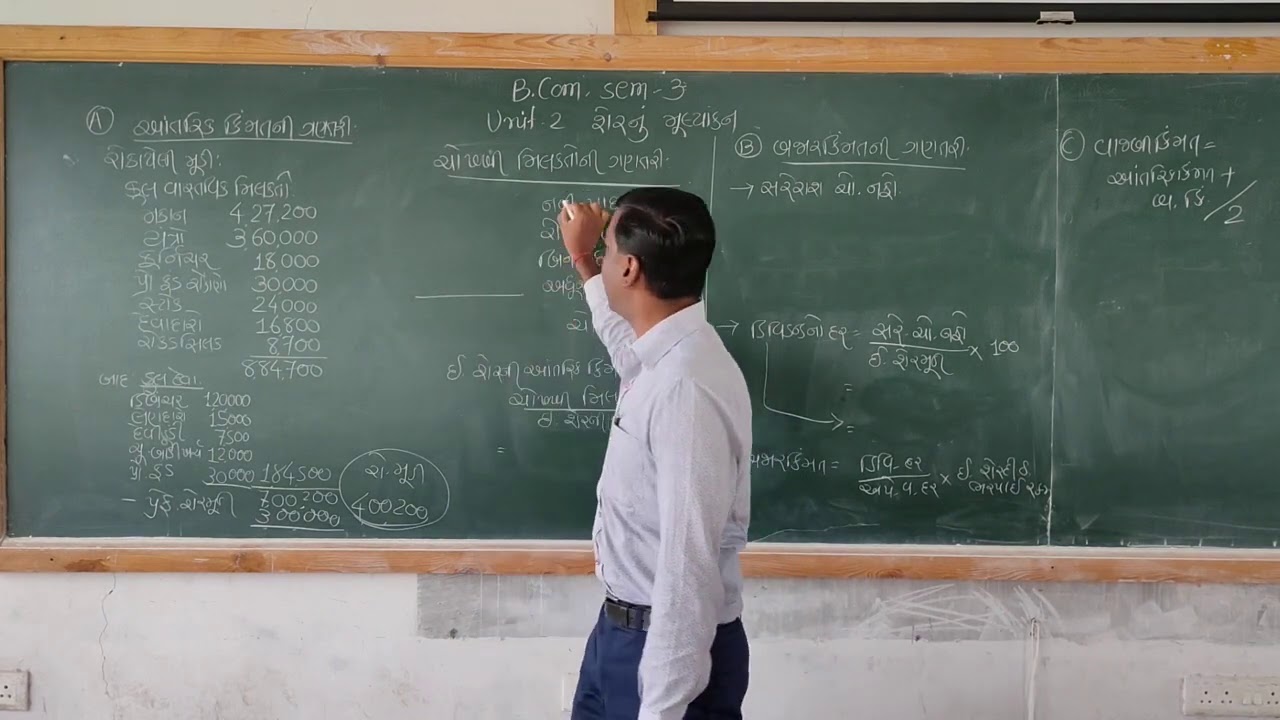 B.Com. sem-3
Unit-2 શેરનું મૂલ્યાંકન
A આંતરિક કિંમતની ગણતરી.
રોકાયેલી મૂડી:
કુલ વાસ્તવિક મિલકતો
મકાન 4,27,200
યંત્રો 3,60,000
ફર્નિચર 18,000
પ્રો ફંડ રોકાણો 30000
સ્ટોક 24000
દેવાદારો 16800
રોકડ સિલક 8,700
8,84,700
બાદ: કુલ દેવા.
ડિબેંચર 120000
લેણદારો 15000
દેવીહૂંડી 7500
ચૂ. બાકી ખર્ચ 12000
પ્રો ફંડ 30000 184500
700200
- પ્રેફ. શેરમૂડી 300000
શે. મૂડી
400200
ચોખ્ખી મિલકતોની ગણતરી.
ઈ. શેરની આંતરિક કિંમ
ચોખ્ખી મિલ
ઈ. શેરની
=
B બજારકિંમતની ગણતરી.
→ સરેરાશ ચો. નફો.
→ ડિવિડન્ડનો દર = સરે. ચો. નફો / ઈ. શેરમૂડી × 100
=
=
બજારકિંમત = ડિવિ. દર / અપે. વ. દર × ઈ. શેરદીઠ ભરપાઈ રકમ
C વાજબી કિંમત =
આંતરિક કિંમત +
બ. કિં. / 2